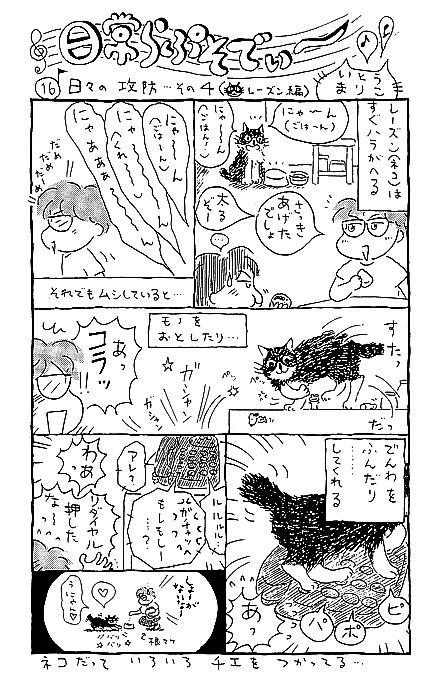 日常らぷそでぃー
16 日々の 攻防…その4(レーズン編)
とりうみ
レーズン(ネコ)は
すぐハラがへる
にゃ〜ん
(ごはーん)
にゃ〜ん
(ごはん!)
さっき
あげた
でしょ
太る
ぞー
にゃ〜〜ん
(ごはーん)
にゃ〜〜ん
(くれー)
にゃあぁぁ〜
だめ
だめ
だめー
それでもムシしていると…
すたっ
モノを
おとしたり…
ガシャン
ガチャン
ペッ
ペッ
あっ
コラッ!!
だっ
でんわを
ふんだり
してくれる
ピ
ポ
パ
あっ
ルルルル…
ガチャッ
もしもしー
…?
アレ?
わあっ
リダイヤル
押した
な〜っ
しょー
がないな
うにゃ〜
バリ
バリ
根マケ
ネコだって いろいろ チエを つかってる…